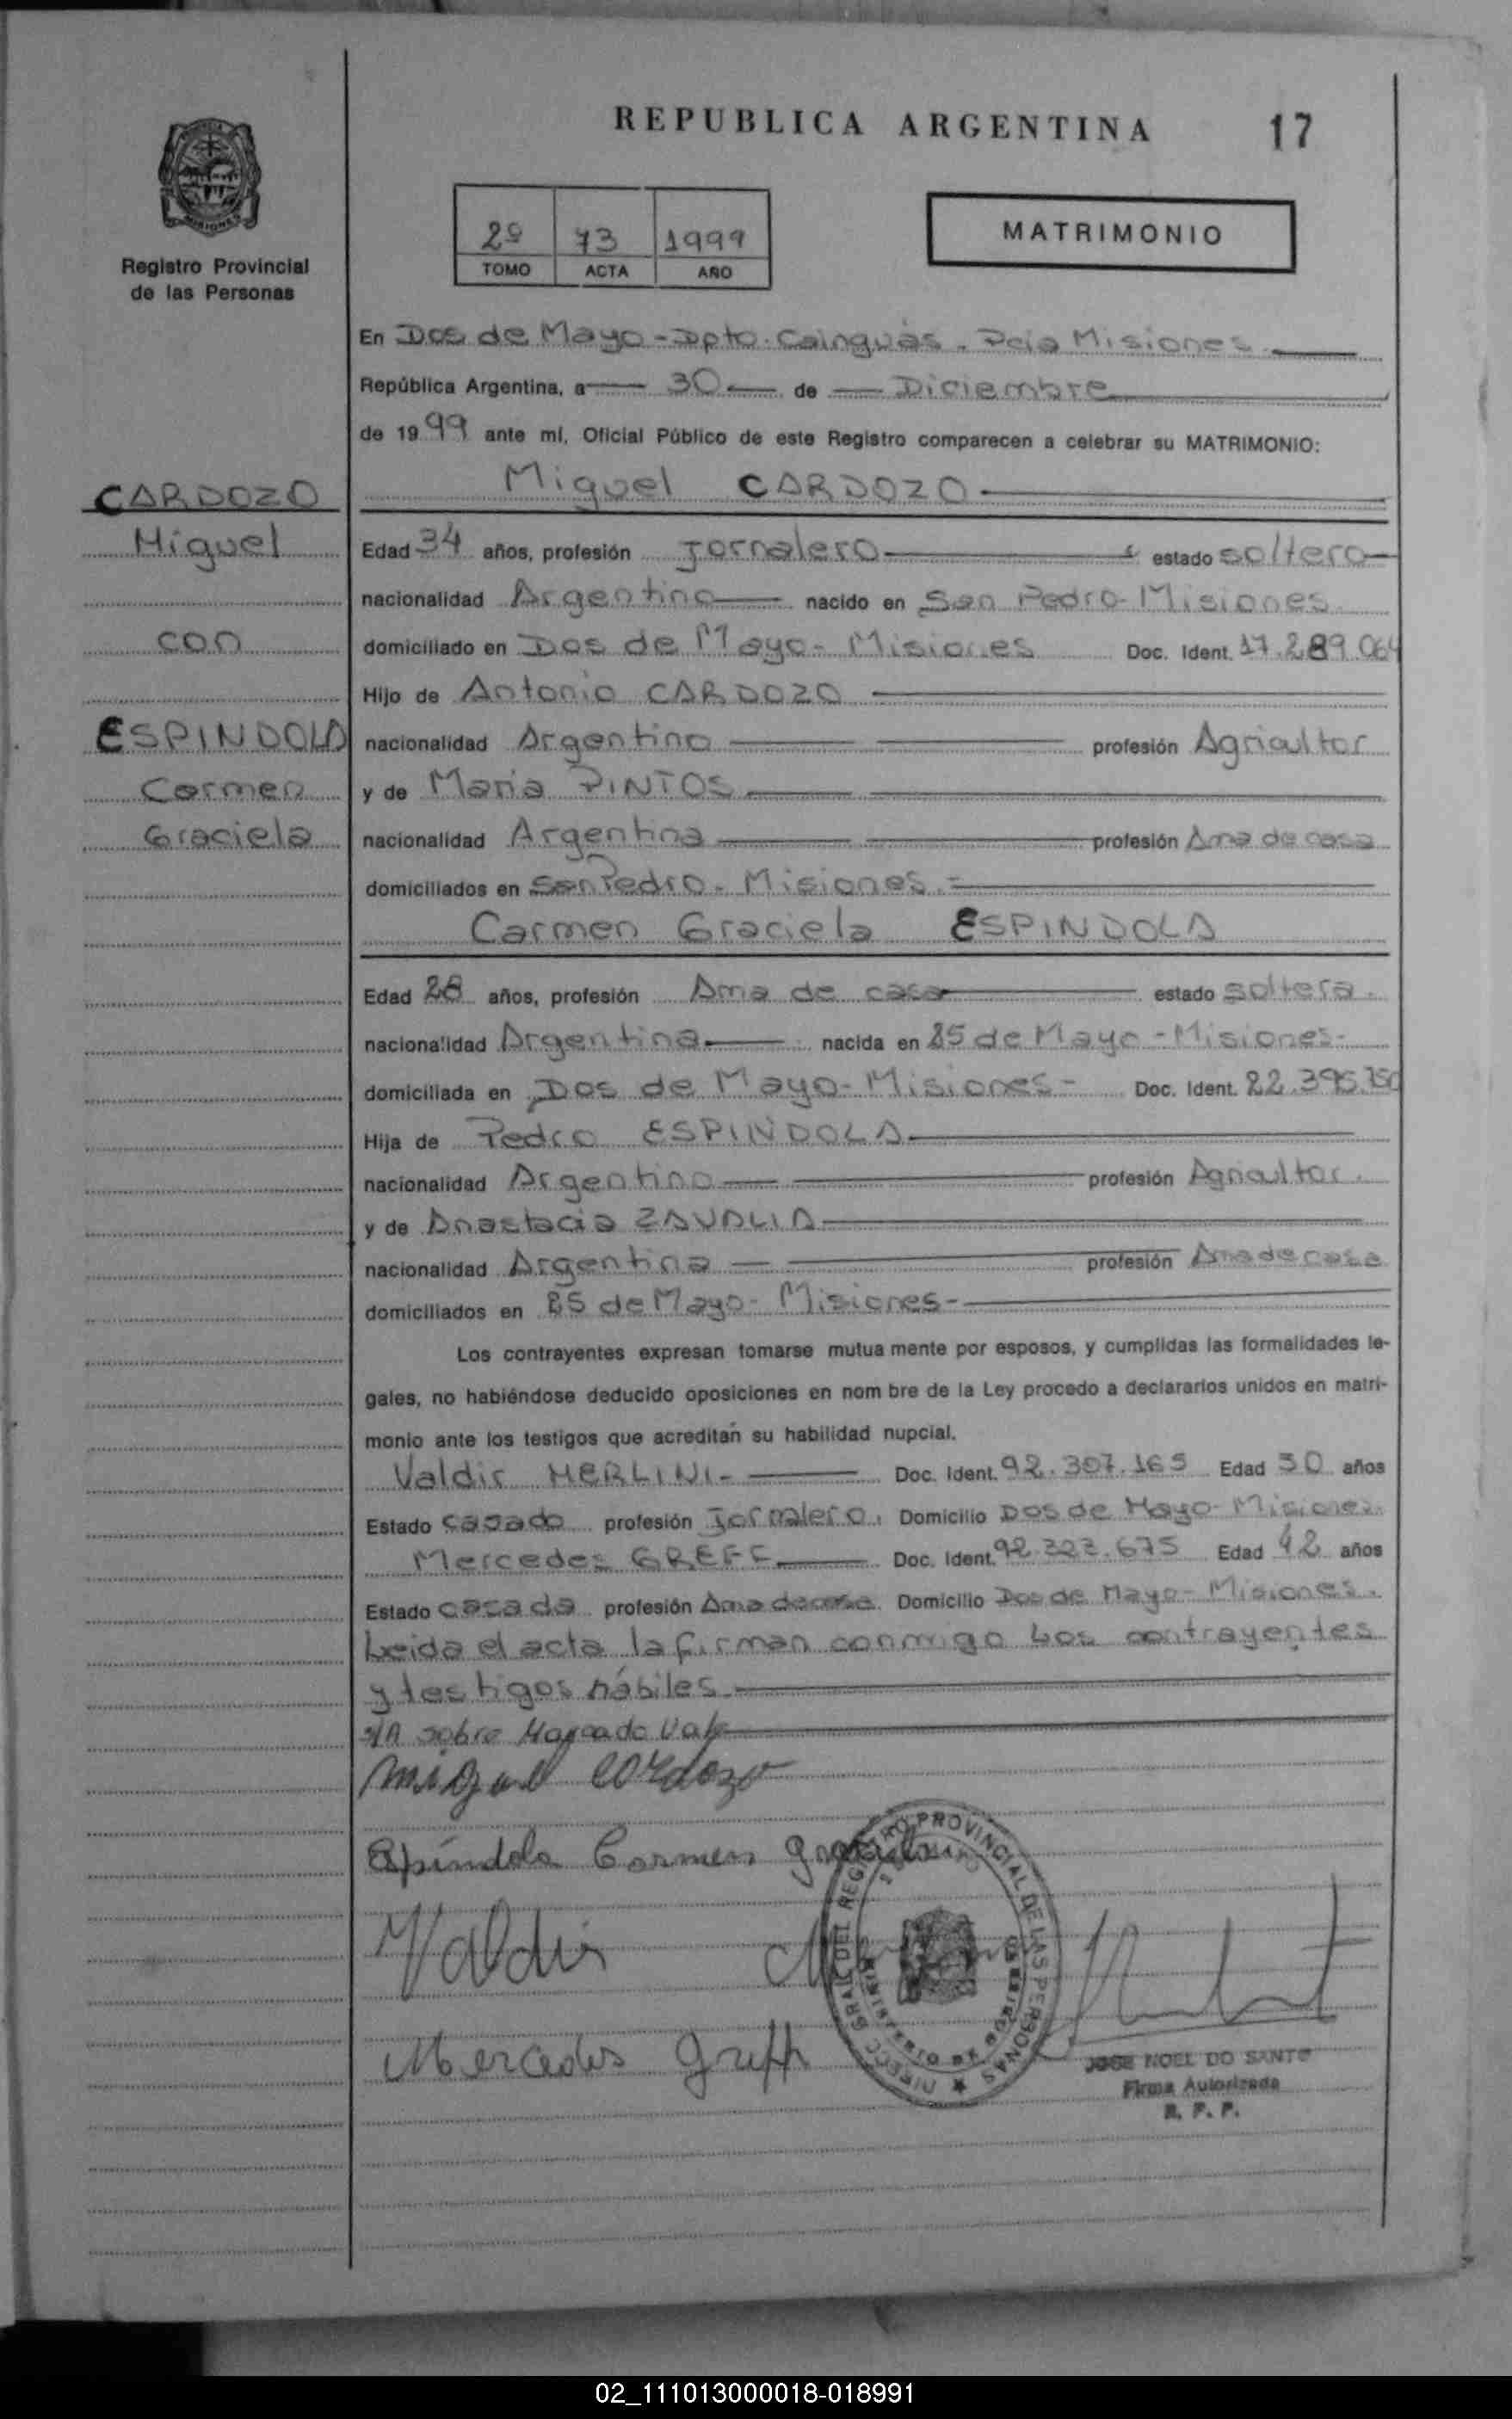 REPUBLICA ARGENTINA 17
MISIONES
Registro Provincial
de las Personas
2º 73 1999
TOMO ACTA AÑO
MATRIMONIO
En Dos de Mayo - Dpto. Cainguás. Pcia Misiones
República Argentina, a 30 de Diciembre
de 1999 ante mí, Oficial Público de este Registro comparecen a celebrar su MATRIMONIO:
CARDOZO
Miguel
con
ESPINDOLA
Carmen
Graciela
Miguel CARDOZO
Edad 34 años, profesión Jornalero estado soltero
nacionalidad Argentino nacido en San Pedro - Misiones
domiciliado en Dos de Mayo - Misiones Doc. Ident. 17.289.064
Hijo de Antonio CARDOZO
nacionalidad Argentino profesión Agricultor
y de Maria PINTOS
nacionalidad Argentina profesión Ama de casa
domiciliados en San Pedro - Misiones.-
Carmen Graciela ESPINDOLA
Edad 28 años, profesión Ama de casa estado soltera.
nacionalidad Argentina nacida en 25 de Mayo - Misiones-
domiciliada en Dos de Mayo - Misiones - Doc. Ident. 22.395.750
Hija de Pedro ESPINDOLA
nacionalidad Argentino profesión Agricultor.
y de Anastacia ZAVALIA
nacionalidad Argentina profesión Ama de casa
domiciliados en 25 de Mayo - Misiones -
Los contrayentes expresan tomarse mutua mente por esposos, y cumplidas las formalidades le-
gales, no habiéndose deducido oposiciones en nom bre de la Ley procedo a declararlos unidos en matri-
monio ante los testigos que acreditan su habilidad nupcial.
Valdir MERLINI - Doc. Ident. 92.307.165 Edad 50 años
Estado casado profesión Jornalero. Domicilio Dos de Mayo - Misiones.
Mercedes GREFF Doc. Ident. 92.323.675 Edad 42 años
Estado casada profesión Ama de casa Domicilio Dos de Mayo - Misiones.
Leida el acta la firman conmigo los contrayentes
y testigos hábiles
S/A sobre Marcado Vale
Miguel Cardozo
Espíndola Carmen Graciela
Valdir
Mercedes Greff
DIRECC. GRAL. DEL REGISTRO PROVINCIAL DE LAS PERSONAS
MINISTERIO DE GOBIERNO
JOSE NOEL DO SANTO
Firma Autorizada
R. P. P.
02_111013000018-018991